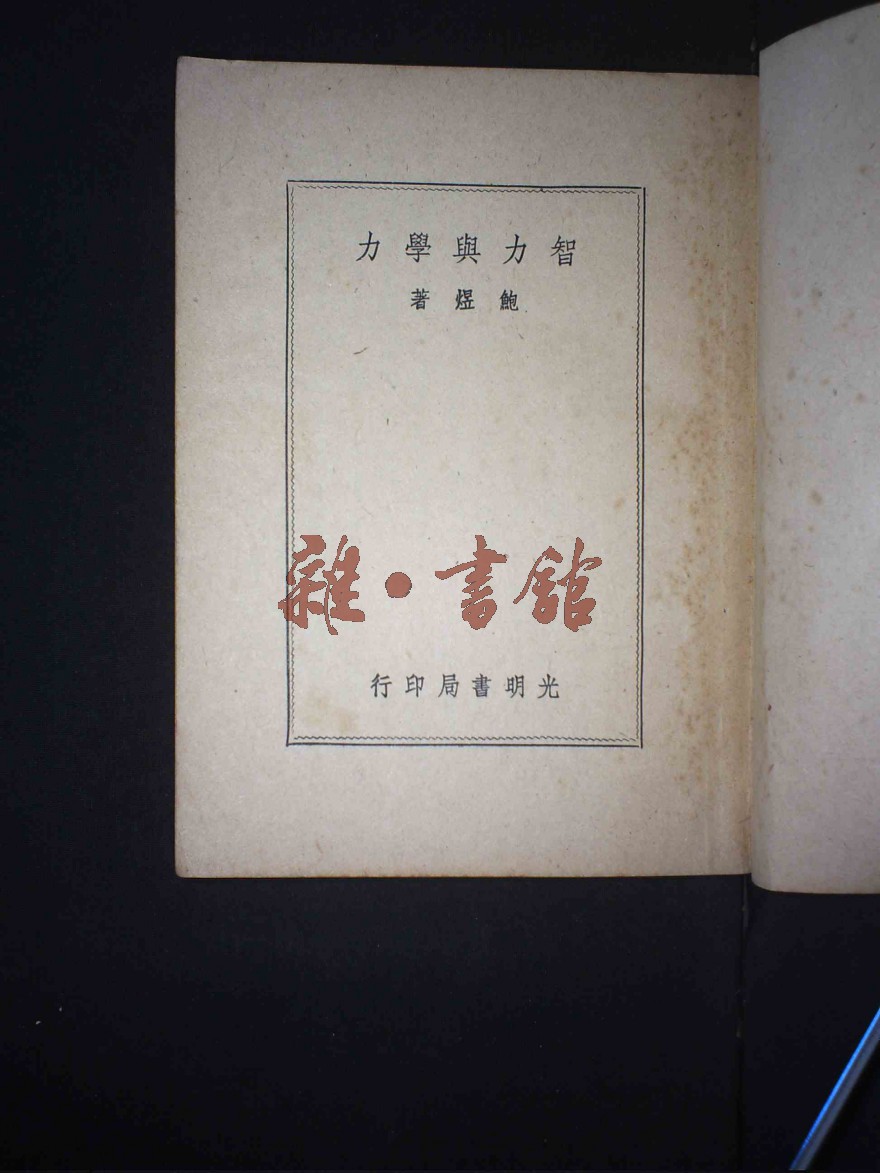 智力與學力
鮑煜著
雜·書館
光明書局印行